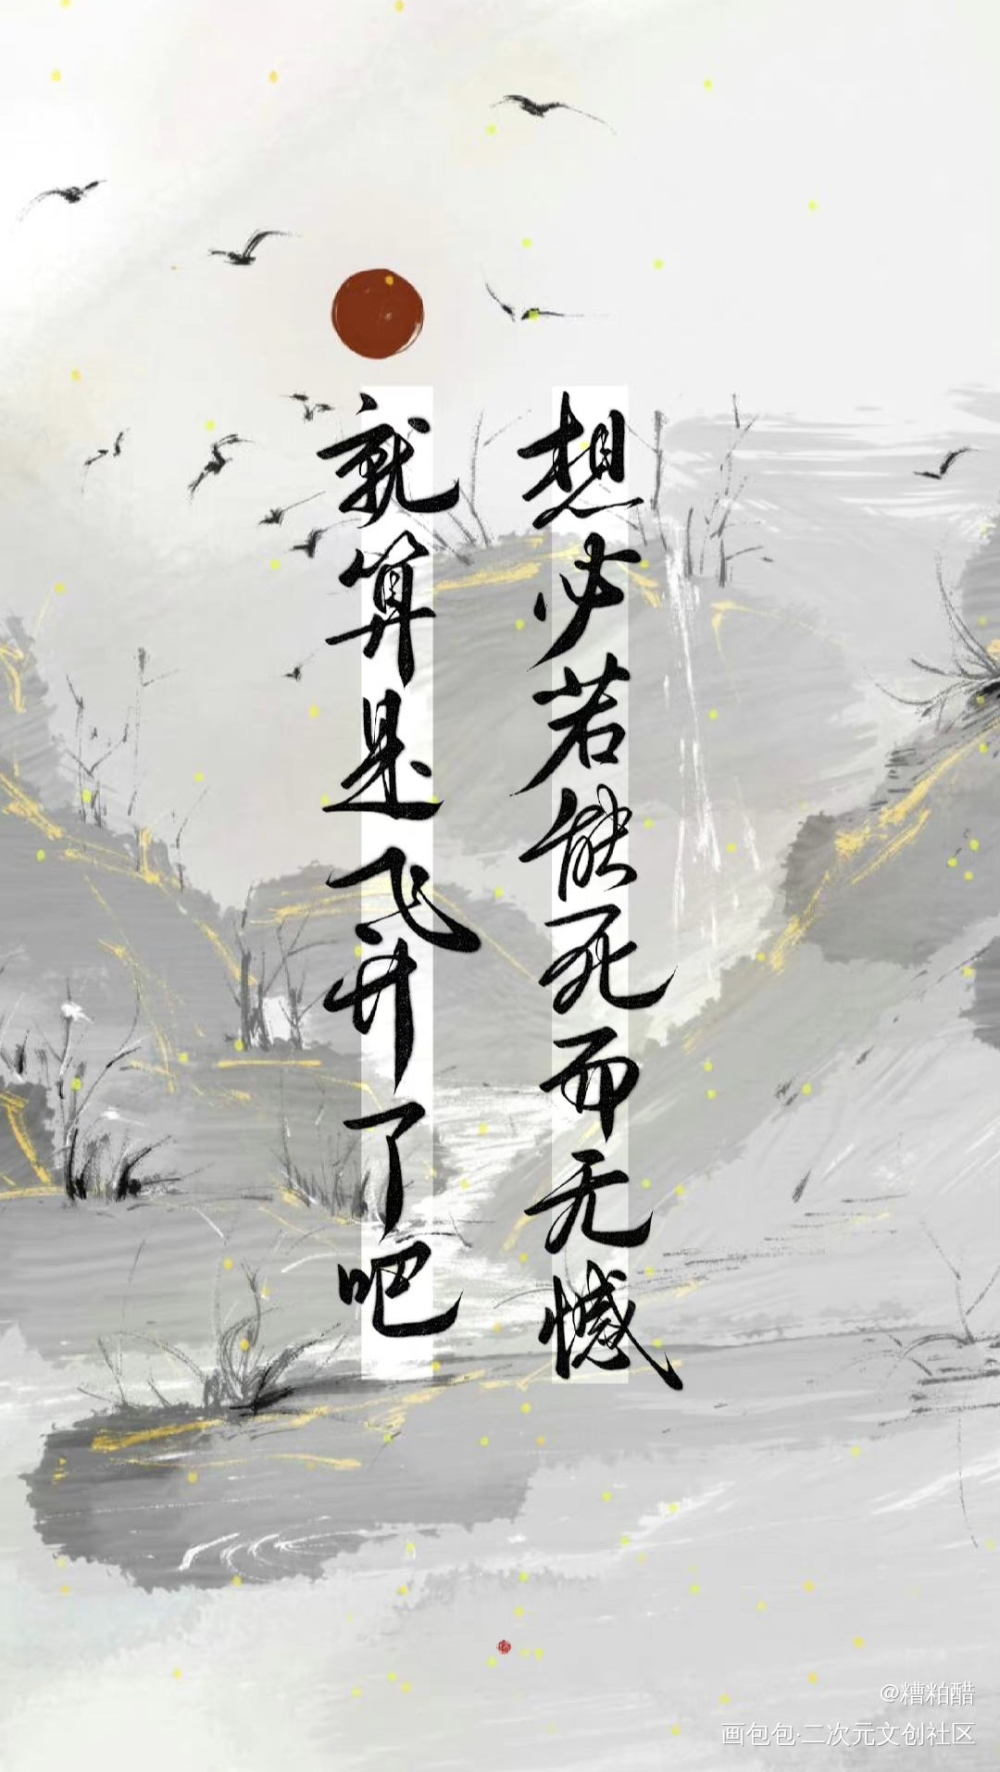 想必若能死而无憾
就算是飞升了吧
@糟粕醋
画包包·二次元文创社区